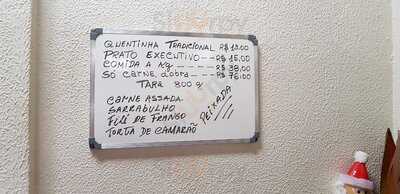 QUENTINHA TRADICIONAL R$ 13.00
PRATO EXECUTIVO -- R$ 15,00
COMIDA A Kg --- R$ 38,00
SÓ CARNE dobra -- R$ 76,00
TARA 800 g
CARNE ASSADA
SARRABULHO
FILÉ DE FRANGO
TORTA DE CAMARÃO
PEIXADA